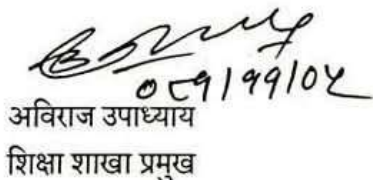 ०८१/११/०५
अविराज उपाध्याय
शिक्षा शाखा प्रमुख